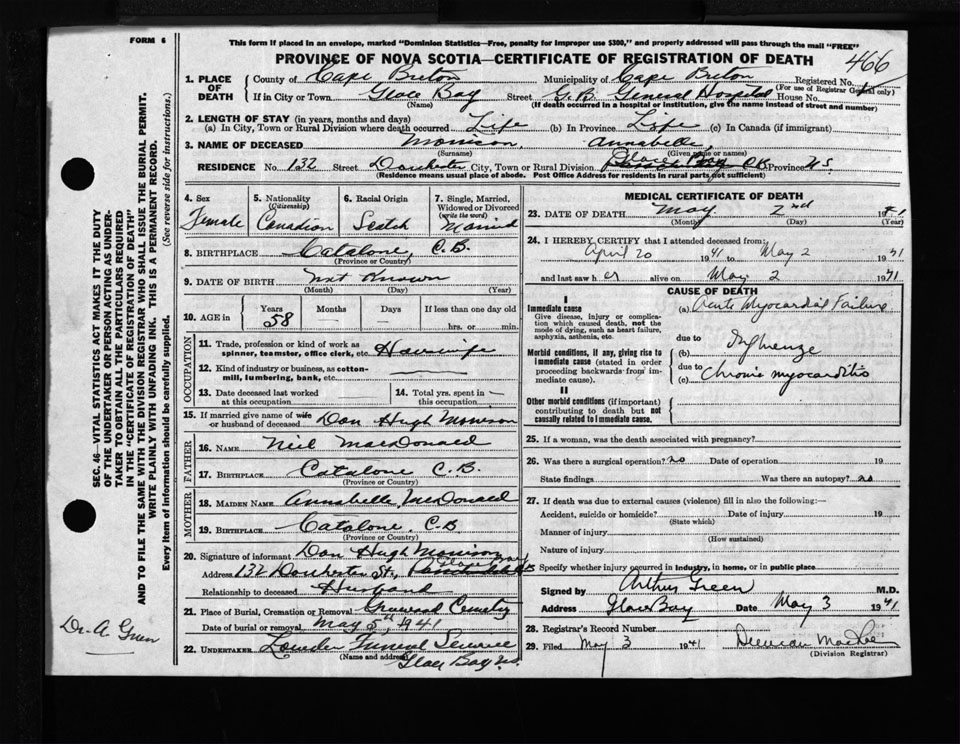 FORM 6
This form if placed in an envelope, marked "Dominion Statistics—Free, penalty for improper use $300," and properly addressed will pass through the mail "FREE"
PROVINCE OF NOVA SCOTIA—CERTIFICATE OF REGISTRATION OF DEATH
466
1. PLACE OF DEATH County of Cape Breton Municipality of Cape Breton Registered No.
(For use of Registrar General only)
If in City or Town Glace Bay Street G.B. General Hospital House No.
(Name) (If death occurred in a hospital or institution, give the name instead of street and number)
2. LENGTH OF STAY (in years, months and days)
(a) In City, Town or Rural Division where death occurred Life (b) In Province Life (c) In Canada (if immigrant)
3. NAME OF DECEASED Morrison, Annabelle
(Surname) (Given name or names)
RESIDENCE No. 132 Street Dorchester City, Town or Rural Division Glace Bay C.B. Province N.S.
(Residence means usual place of abode. Post Office Address for residents in rural parts not sufficient)
4. Sex Female
5. Nationality (Citizenship) Canadian
6. Racial Origin Scotch
7. Single, Married, Widowed or Divorced (write the word) Married
8. BIRTHPLACE Catalone, C.B.
(Province or Country)
9. DATE OF BIRTH Not Known
(Month) (Day) (Year)
10. AGE Years 58 Months — Days — If less than one day old
hrs. or min.
OCCUPATION
11. Trade, profession or kind of work as spinner, teamster, office clerk, etc. Housewife
12. Kind of industry or business, as cotton-mill, lumbering, bank, etc.
13. Date deceased last worked at this occupation
14. Total yrs. spent in this occupation
15. If married give name of wife or husband of deceased Dan Hugh Morrison
FATHER
16. NAME Neil MacDonald
17. BIRTHPLACE Catalone C.B.
(Province or Country)
MOTHER
18. MAIDEN NAME Annabelle MacDonald
19. BIRTHPLACE Catalone, C.B
(Province or Country)
20. Signature of informant Dan Hugh Morrison
Address 132 Dorchester St., Glace Bay
Relationship to deceased Husband
21. Place of Burial, Cremation or Removal Greenwood Cemetery
Date of burial or removal May 5th, 1941
22. UNDERTAKER Funeral Service
(Name and address) Glace Bay N.S.
MEDICAL CERTIFICATE OF DEATH
23. DATE OF DEATH May 2nd 1941
(Month) (Day) (Year)
24. I HEREBY CERTIFY that I attended deceased from:
April 20 1941 to May 2 1941
and last saw her alive on May 2 1941
CAUSE OF DEATH
I
Immediate cause
Give disease, injury or complication which caused death, not the mode of dying, such as heart failure, asphyxia, asthenia, etc.
(a) Acute Myocardial Failure
due to
Morbid conditions, if any, giving rise to immediate cause (stated in order proceeding backwards from immediate cause).
(b) Influenza
due to
(c) Chronic myocarditis
II
Other morbid conditions (if important) contributing to death but not causally related to immediate cause.
25. If a woman, was the death associated with pregnancy?
26. Was there a surgical operation? no Date of operation 19
State findings Was there an autopsy? no
27. If death was due to external causes (violence) fill in also the following:—
Accident, suicide or homicide? Date of injury 19
(State which)
Manner of injury
(How sustained)
Nature of injury
Specify whether injury occurred in industry, in home, or in public place
Signed by Arthur Green M.D.
Address Glace Bay Date May 3 1941
28. Registrar's Record Number
29. Filed May 3 1941
(Division Registrar)
SEC. 46—VITAL STATISTICS ACT MAKES IT THE DUTY OF THE UNDERTAKER OR PERSON ACTING AS UNDERTAKER TO OBTAIN ALL THE PARTICULARS REQUIRED IN THE "CERTIFICATE OF REGISTRATION OF DEATH"
AND TO FILE THE SAME WITH THE DIVISION REGISTRAR WHO SHALL ISSUE THE BURIAL PERMIT.
WRITE PLAINLY WITH UNFADING INK. THIS IS A PERMANENT RECORD.
Every item of information should be carefully supplied. (See reverse side for instructions.)
Dr. A. Green